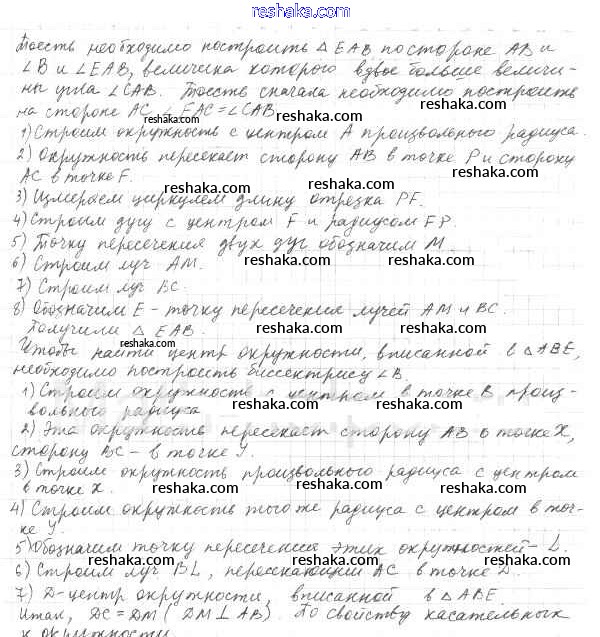 reshaka.com
Тоесть необходимо построить △ EAB по стороне AB и
∠B и ∠EAB, величина которого вдвое больше величи-
ны угла ∠CAB. Тоесть сначала необходимо построить
reshaka.com reshaka.com
на стороне AC ∠EAC = ∠CAB.
reshaka.com
1) Строим окружность с центром A произвольного радиуса.
2) Окружность пересекает сторону AB в точке P и сторону
reshaka.com reshaka.com
AC в точке F.
reshaka.com
3) Измеряем циркулем длину отрезка PF.
reshaka.com reshaka.com
4) Строим дугу с центром F и радиусом FP.
5) Точку пересечения двух дуг обозначим M.
6) Строим луч AM.
reshaka.com reshaka.com
7) Строим луч BC.
reshaka.com reshaka.com
8) Обозначим E - точку пересечения лучей AM и BC.
Получили △ EAB.
reshaka.com reshaka.com
reshaka.com
Чтобы найти центр окружности, вписанной в △ABE,
необходимо построить биссектрису ∠B.
reshaka.com reshaka.com
1) Строим окружность с центром в точке B произ-
вольного радиуса
reshaka.com reshaka.com
2) Эта окружность пересекает сторону AB в точке X,
сторону BC - в точке Y.
reshaka.com reshaka.com
3) Строим окружность произвольного радиуса с центром
в точке X.
reshaka.com reshaka.com
4) Строим окружность того же радиуса с центром в точ-
ке Y.
reshaka.com reshaka.com
5) Обозначим точку пересечения этих окружностей - L.
6) Строим луч BL, пересекающий AC в точке D.
reshaka.com reshaka.com
7) D - центр окружности, вписанной в △ABE
Итак, DC = DM (DM ⊥ AB). По свойству касательных
reshaka.com reshaka.com
к окружности